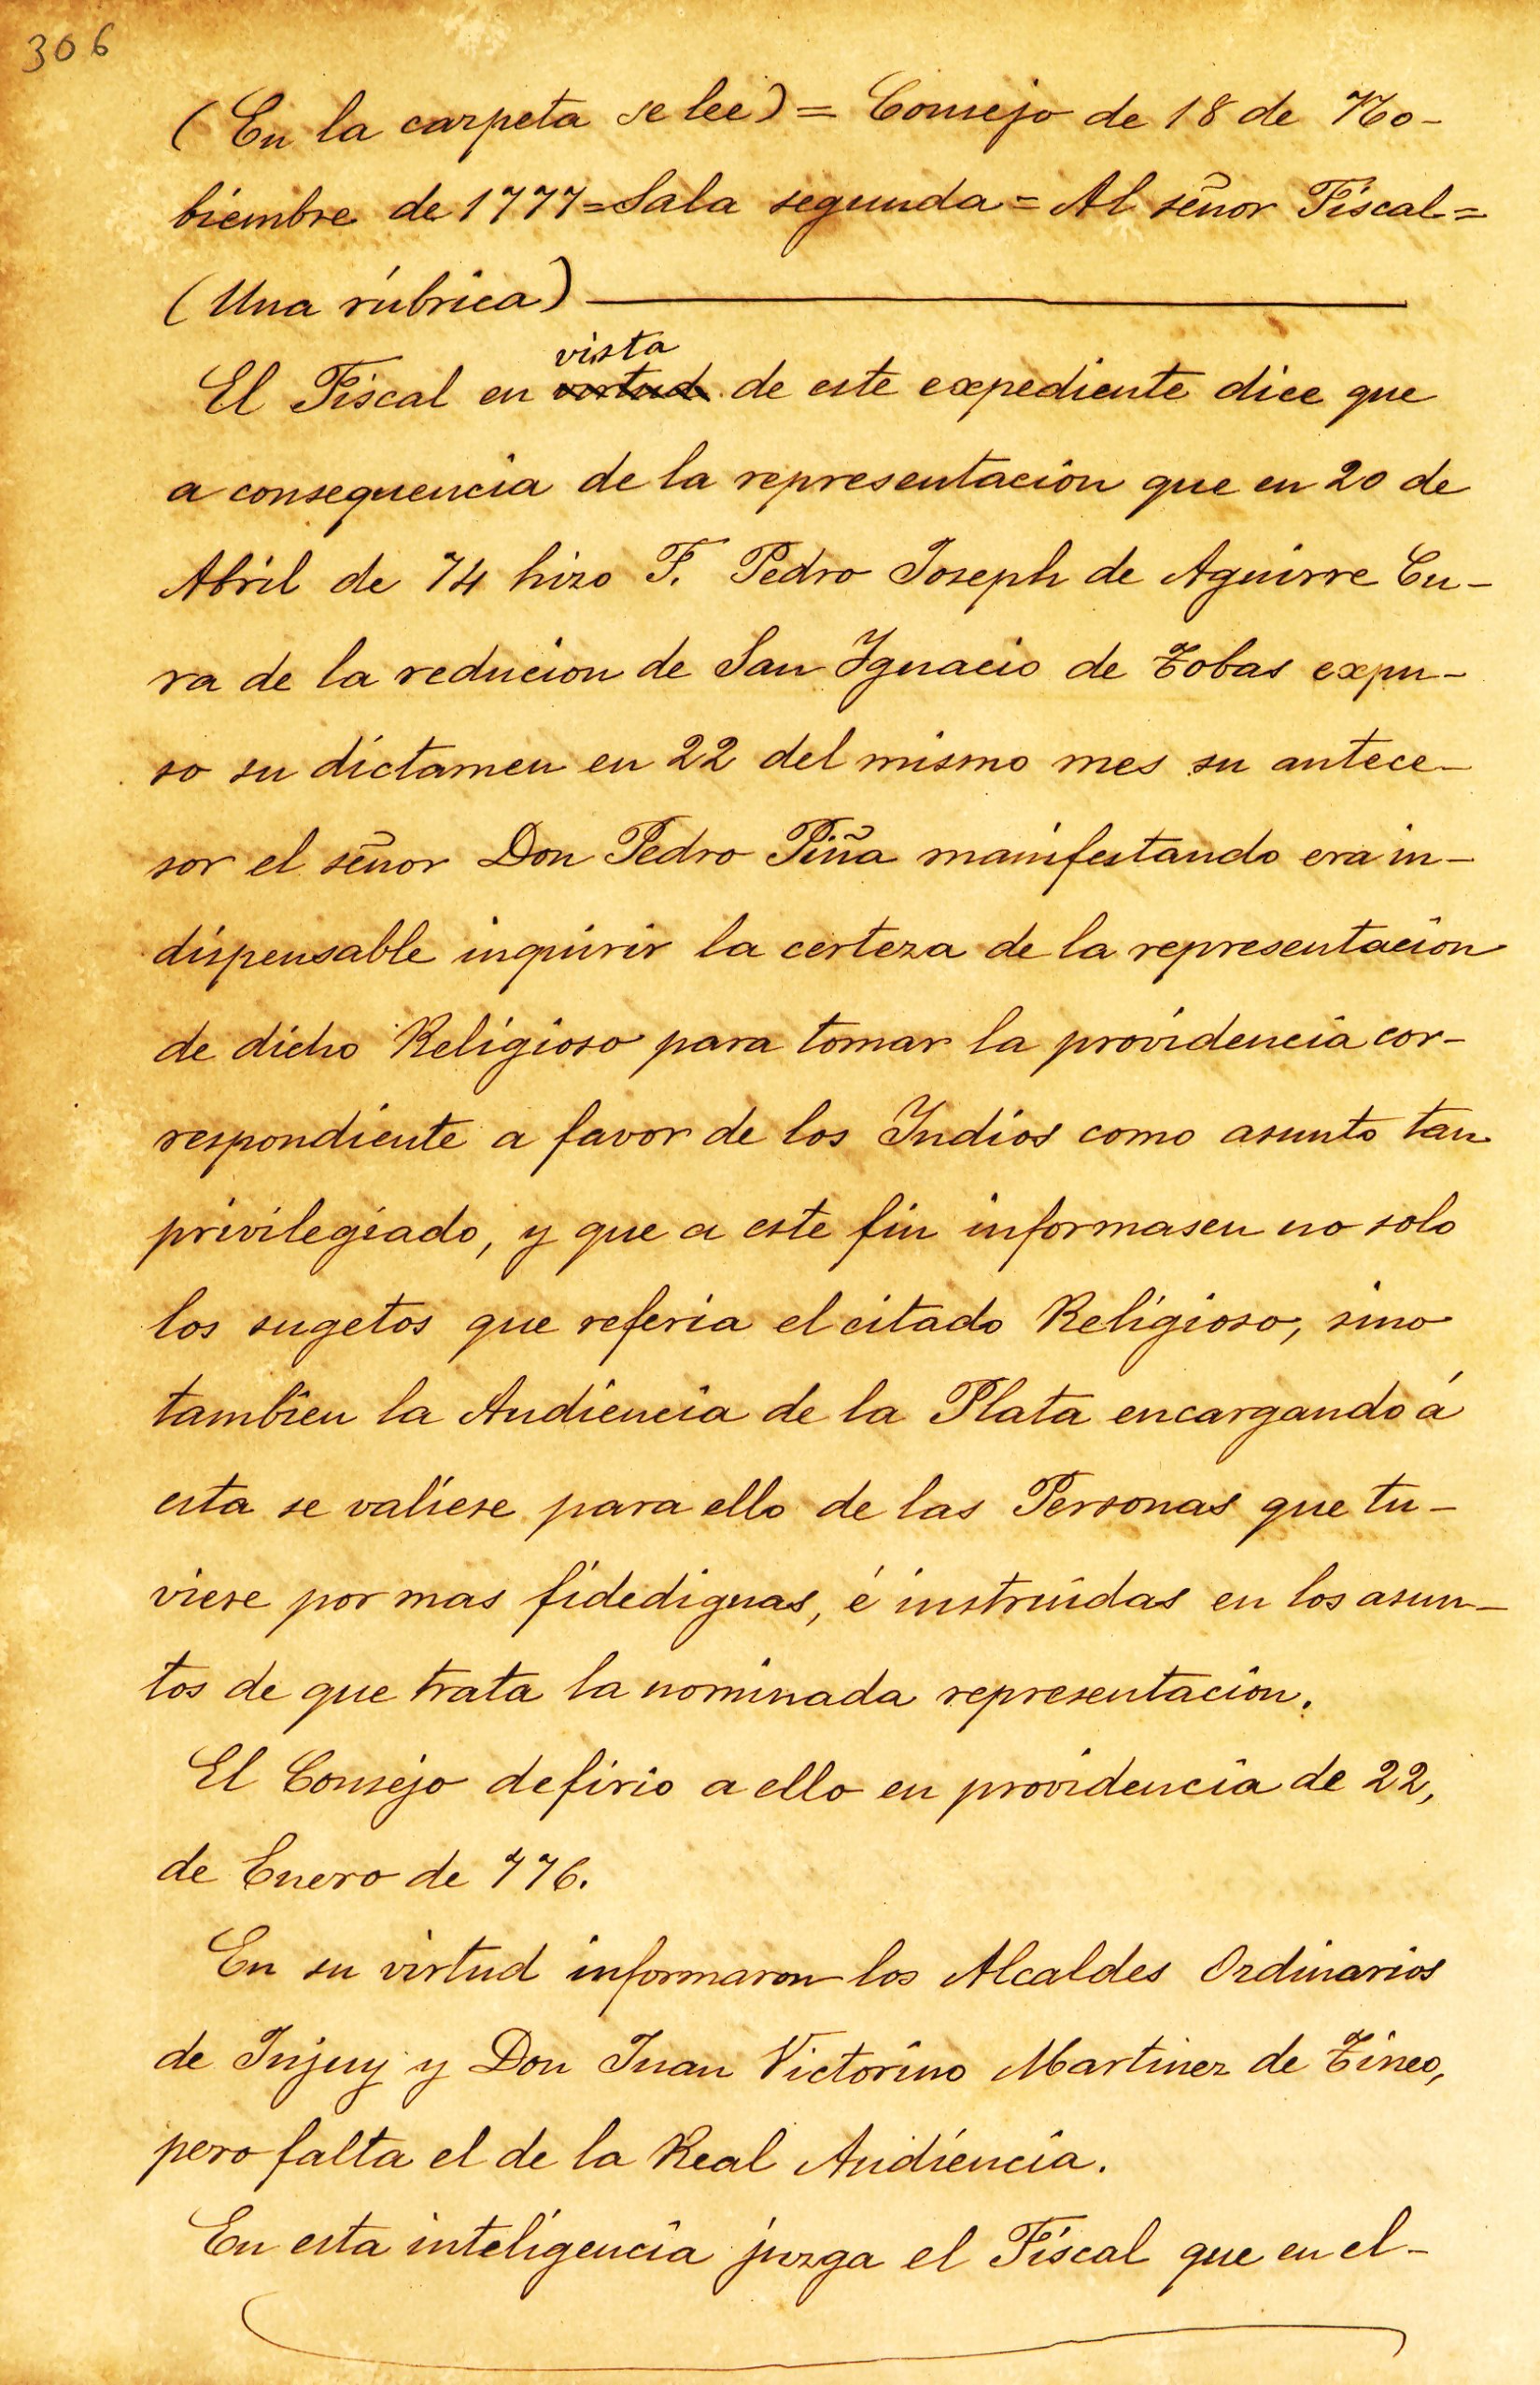 306
(En la carpeta se lee) = Consejo de 18 de No-
biembre de 1777=Sala segunda = Al señor Fiscal=
(Una rúbrica)
vista
El Fiscal en virtud de este expediente dice que
a consequencia de la representación que en 20 de
Abril de 74 hizo F. Pedro Joseph de Aguirre Cu-
ra de la reducion de San Ygnacio de Tobas expu-
so su dictamen en 22 del mismo mes su antece-
sor el señor Don Pedro Piña manifestando era in-
dispensable inquirir la certeza de la representacion
de dicho Religioso para tomar la providencia cor-
respondiente a favor de los Yndios como asunto tan
privilegiado, y que a este fin informasen no solo
los sugetos que referia el citado Religioso, sino
tambien la Audiencia de la Plata encargando á
esta se valiese para ello de las Personas que tu-
viese por mas fidedignas, é instruidas en los asun-
tos de que trata la nominada representacion.
El Consejo defirio a ello en providencia de 22,
de Enero de 776.
En su virtud informaron los Alcaldes Ordinarios
de Jujuy y Don Juan Victorino Martinez de Tineo,
pero falta el de la Real Audiencia.
En esta inteligencia juzga el Fiscal que en el-